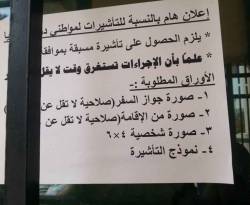 إعلان هام بالنسبة للتأشيرات لمواطني
* يلزم الحصول على تأشيرة مسبقة بموافقة
* علماً بأن الإجراءات تستغرق وقت لا يقل
الأوراق المطلوبة :-
١- صورة جواز السفر (صلاحية لا تقل عن
٢- صورة من الإقامة (صلاحية لا تقل عن
٣- صورة شخصية ٤×٦
٤- نموذج التأشيرة